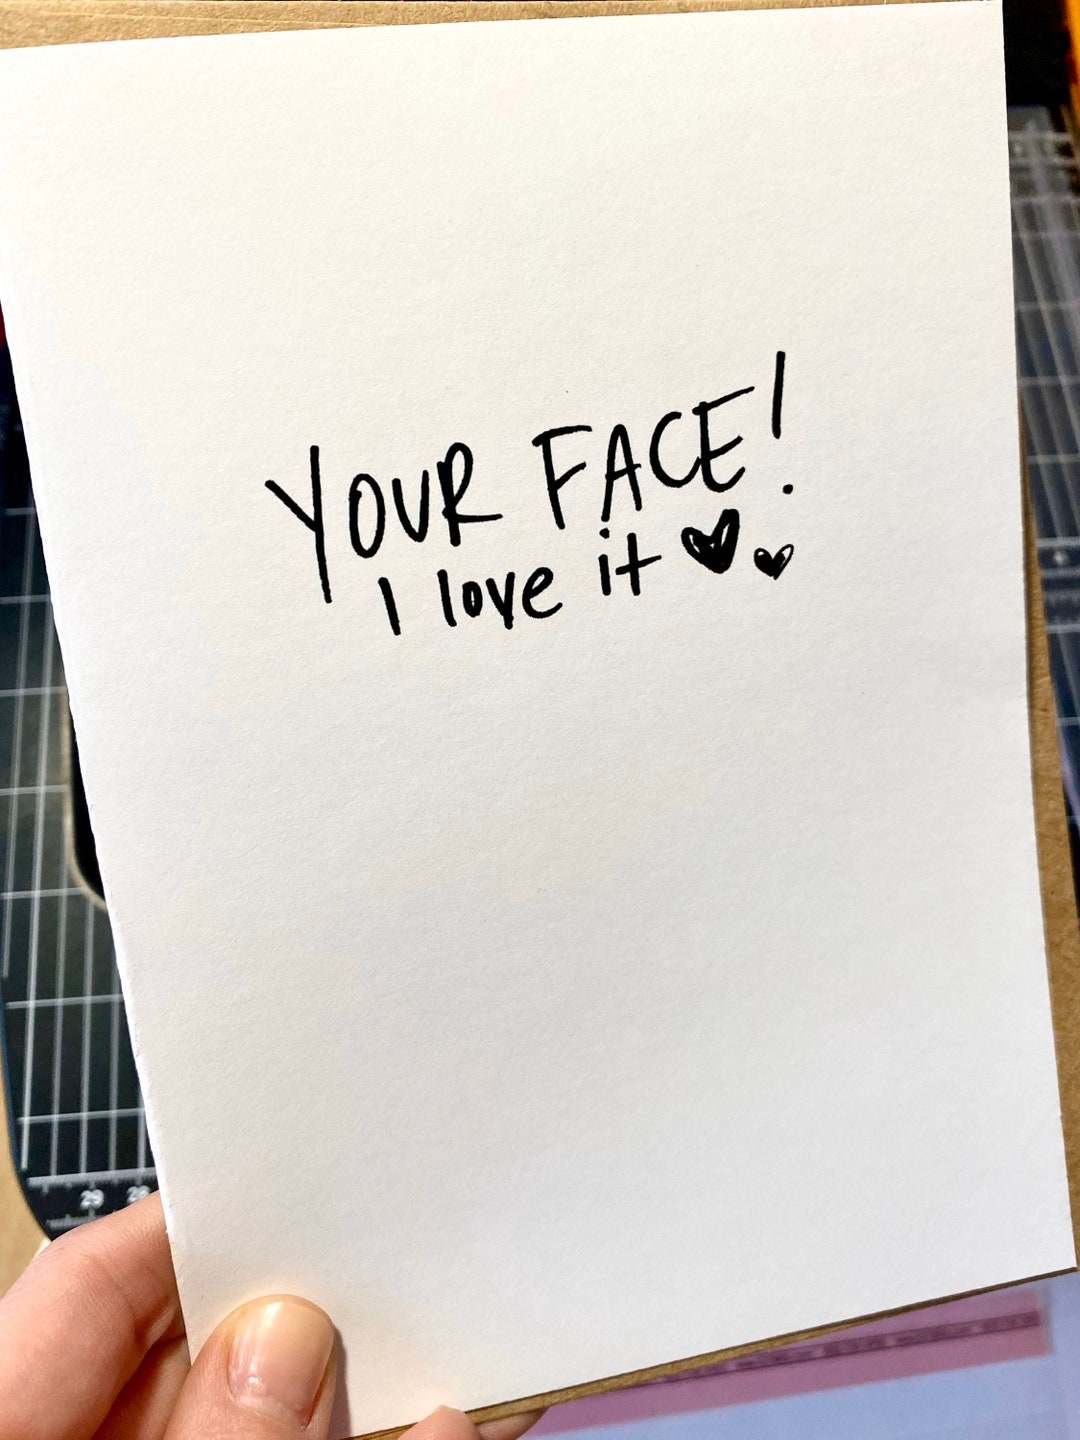 YOUR FACE!
I love it
29